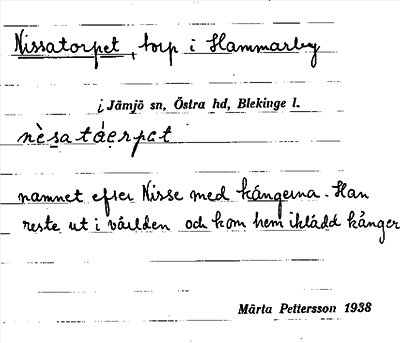 Nissatorpet, torp i Hammarby
i Jämjö sn, Östra hd, Blekinge l.
nèsatáerpet
namnet efter Nisse med kångerna. Han
reste ut i världen och kom hem iklädd kånger
Märta Pettersson 1938